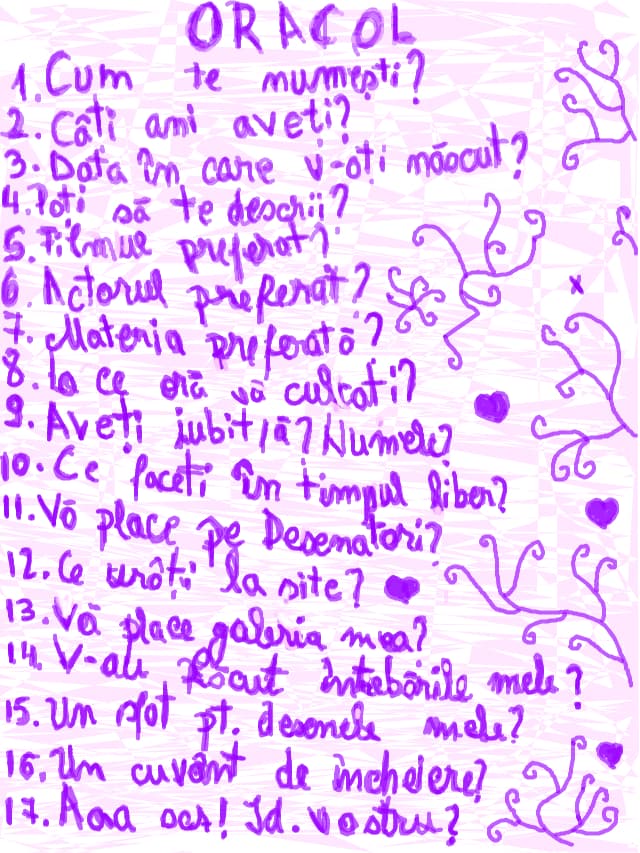 ORACOL
1. Cum te numești?
2. Câti ani aveti?
3. Data în care v-ați născut?
4. Poti să te descrii?
5. Filmul preferat?
6. Actorul preferat?
7. Materia preferată?
8. La ce oră vă culcati?
9. Aveți iubit/ă? Numele?
10. Ce faceti în timpul liber?
11. Vă place pe Desenatori?
12. Ce urâti la site?
13. Vă place galeria mea?
14. V-au plăcut întebările mele?
15. Un sfat pt. desenele mele?
16. Un cuvânt de încheiere?
17. Aaa scs! Id. vostru?